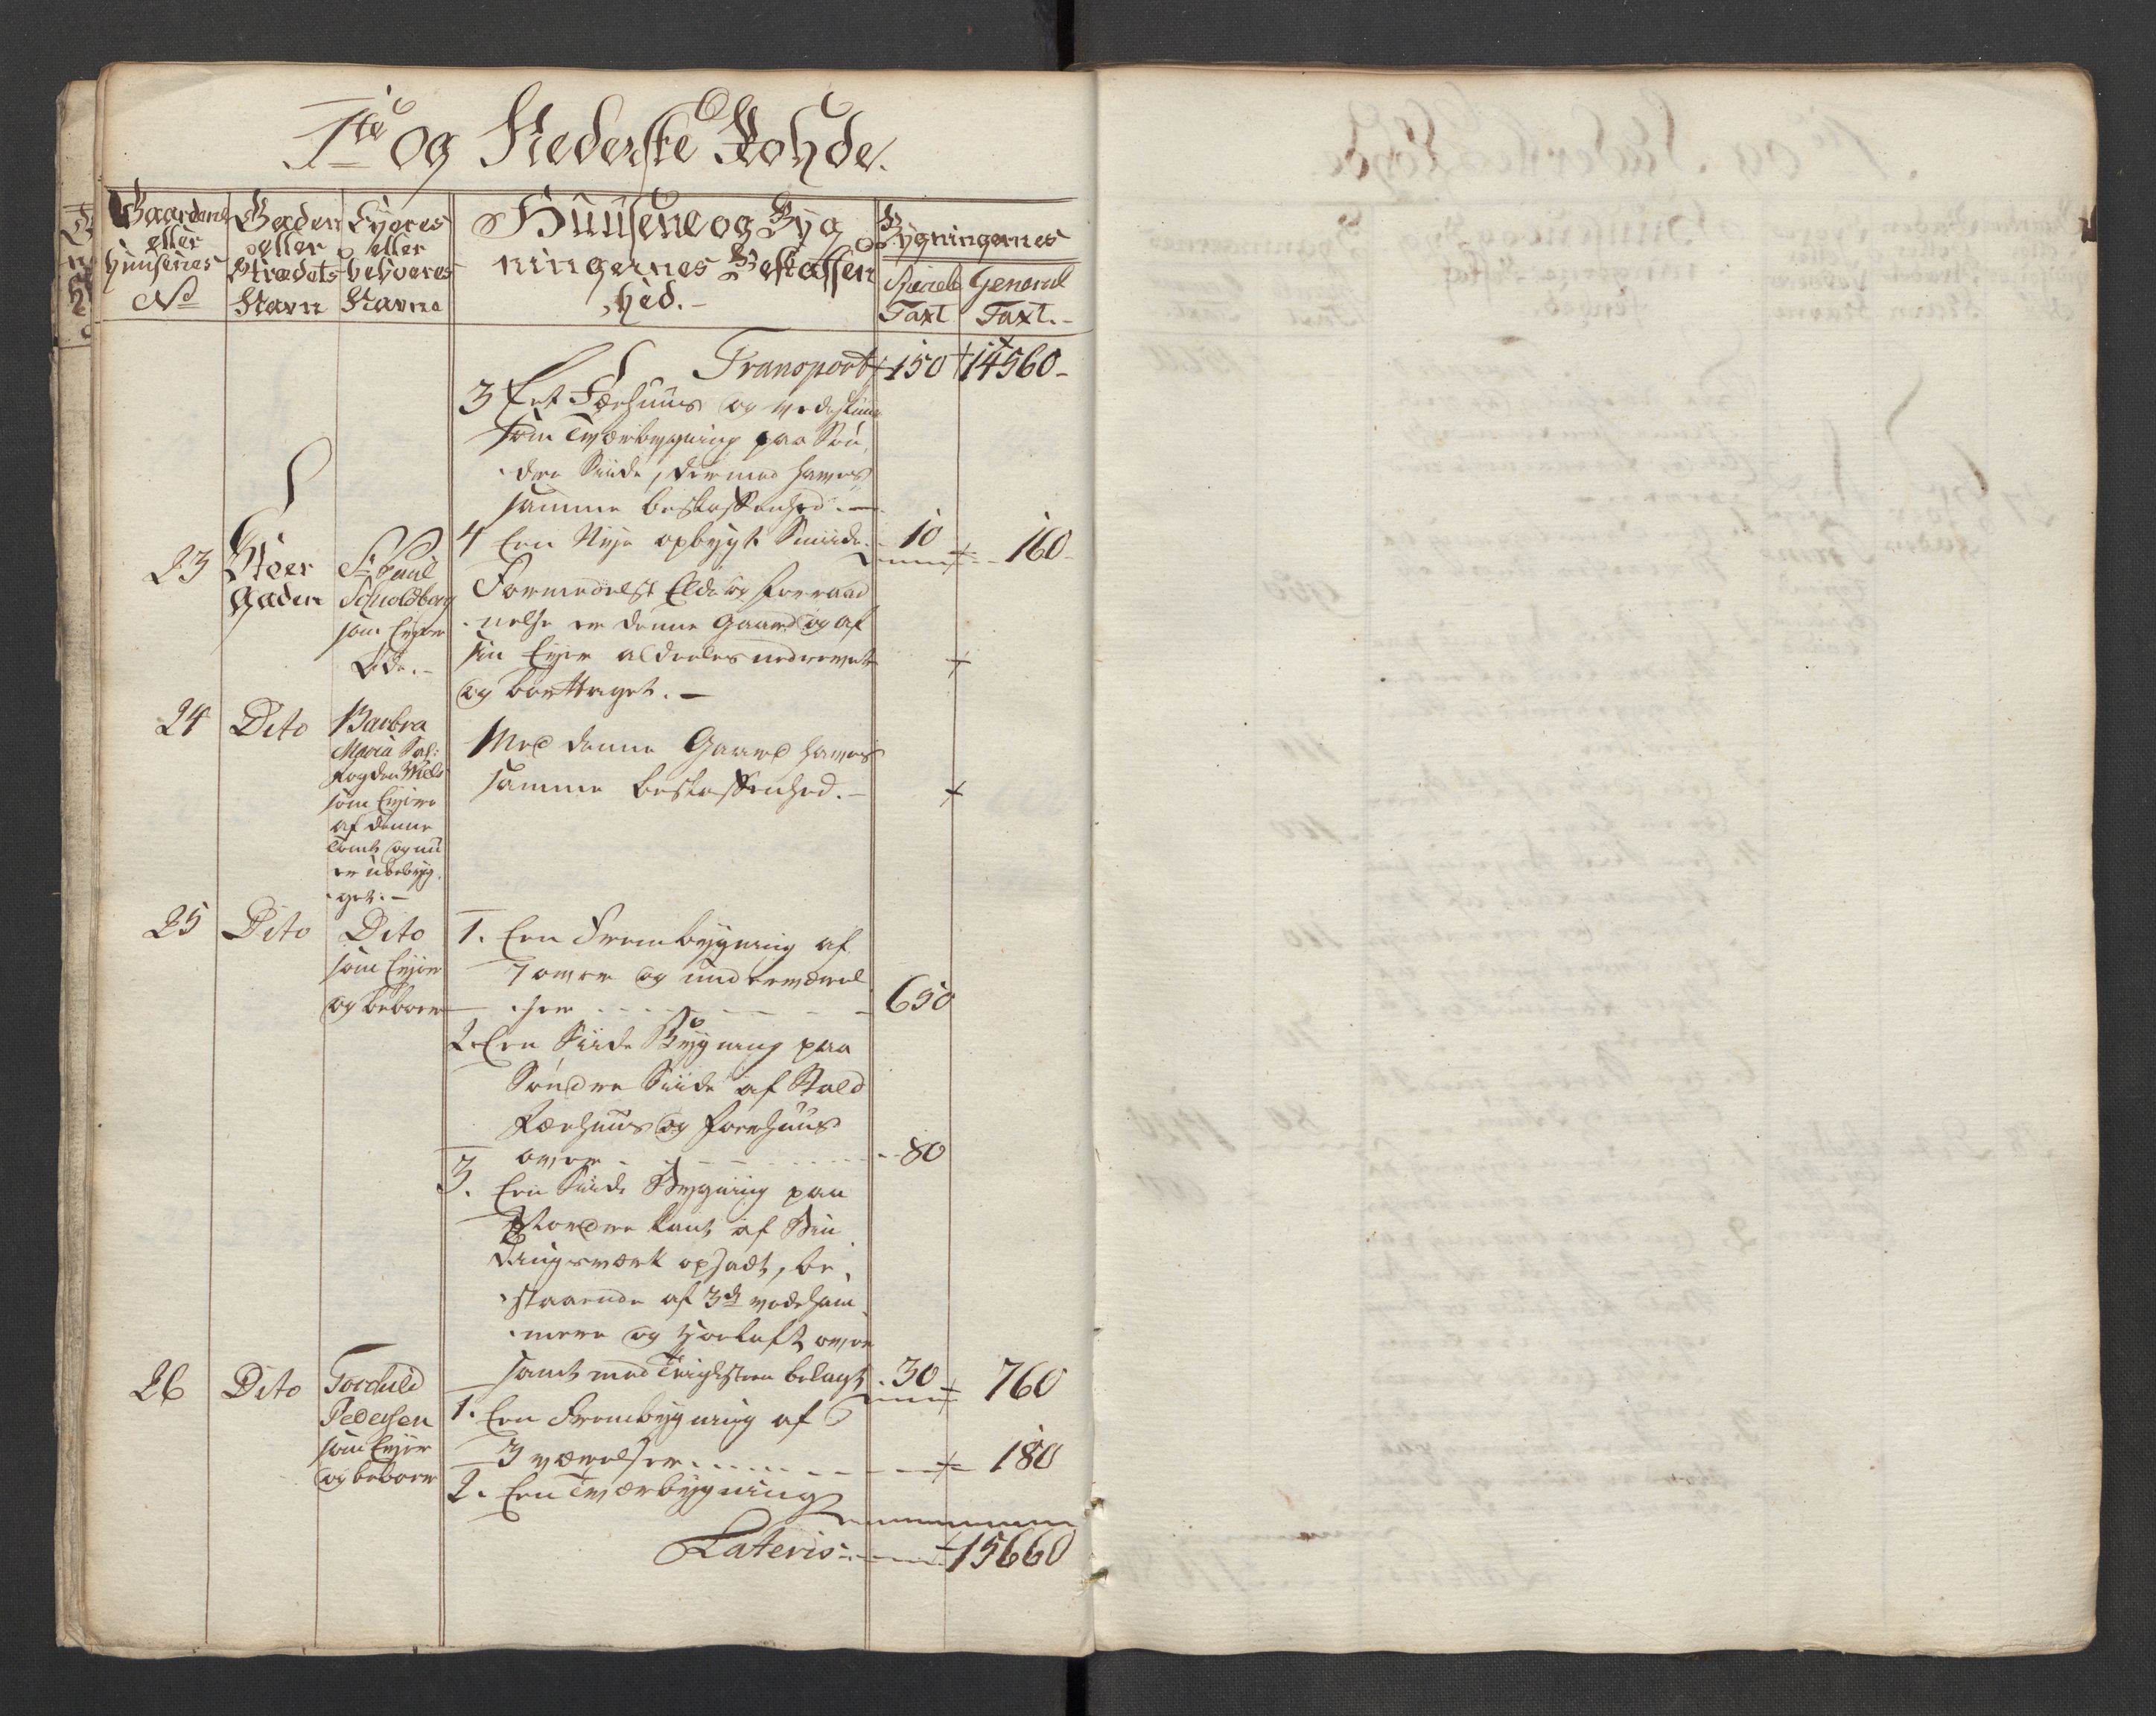 1te og Nederste Rohde.
Gaardens eller Huusenes No
Gaden eller Strædets Navn
Eyeres eller beboeres Navne
Huusene og Byg
ningernes Beskaffen
hed.
Bygningernes
Speciele Taxt
General Taxt.
Transport 150 14560
3 Eet Færhuus og
som Tværbygning paa Sön
dre Siide, dermed haves
samme beskaffenhed.
4 Een Nye opbygt Smiide 10 160
23 Stoer Gaden
Sr Paul
Schioldborg
som Eyer
Øde.
Formedelst Ælde og forraad
nelse er denne Gaard og af
sin Eyer aldeeles nedrevet
og borttaget.
24 Dito
Barbra
Maria Sal:
som Eyere
af denne
Tomt og nu
er ubebyg
get.
Med denne Gaard haves
samme beskaffenhed.
25 Dito Dito
som Eyer
og beboer
1. Een Frembygning af
7 over og underværel
ser 650
2. Een Siide Bygning paa
Søndre Siide af Stald
Færhuus og Foerhuus
over 80
3. Een Siide Bygning paa
Nordre kant af Bin
dingsværk opsadt, be
staaende af 3de vedeham
mere og Høeloft over
samt med Teiglsteen belagt 30 760
26 Dito
Torchild
Pedersen
som Eyer
og beboer
1. Een Frembygning af
3 værelser 180
2. Een Tværbygning
Lateris 15660